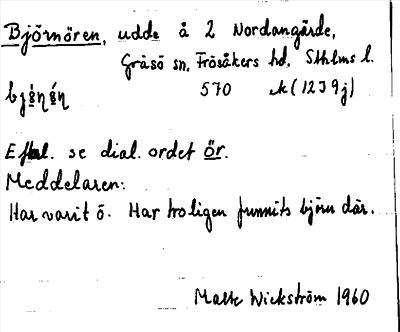 Björnören, udde å 2 Nordangärde,
Gräsö sn, Frösåkers hd, Sthlms l.
570 k (12J9j)
Efterl. se dial. ordet ör.
Meddelaren:
Har varit ö. Har troligen funnits björn där.
Malte Wickström 1960